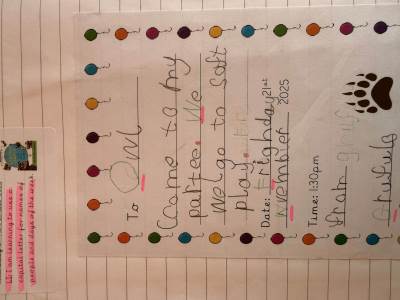 To Om
Come to my
partee. We
wel go to Soft
play.
Date: Frighday 21st
November 2025
Time: 1:30pm
from
Gruffulo
LI: I am learning to use a
capital letter for names of
people and days of the week.